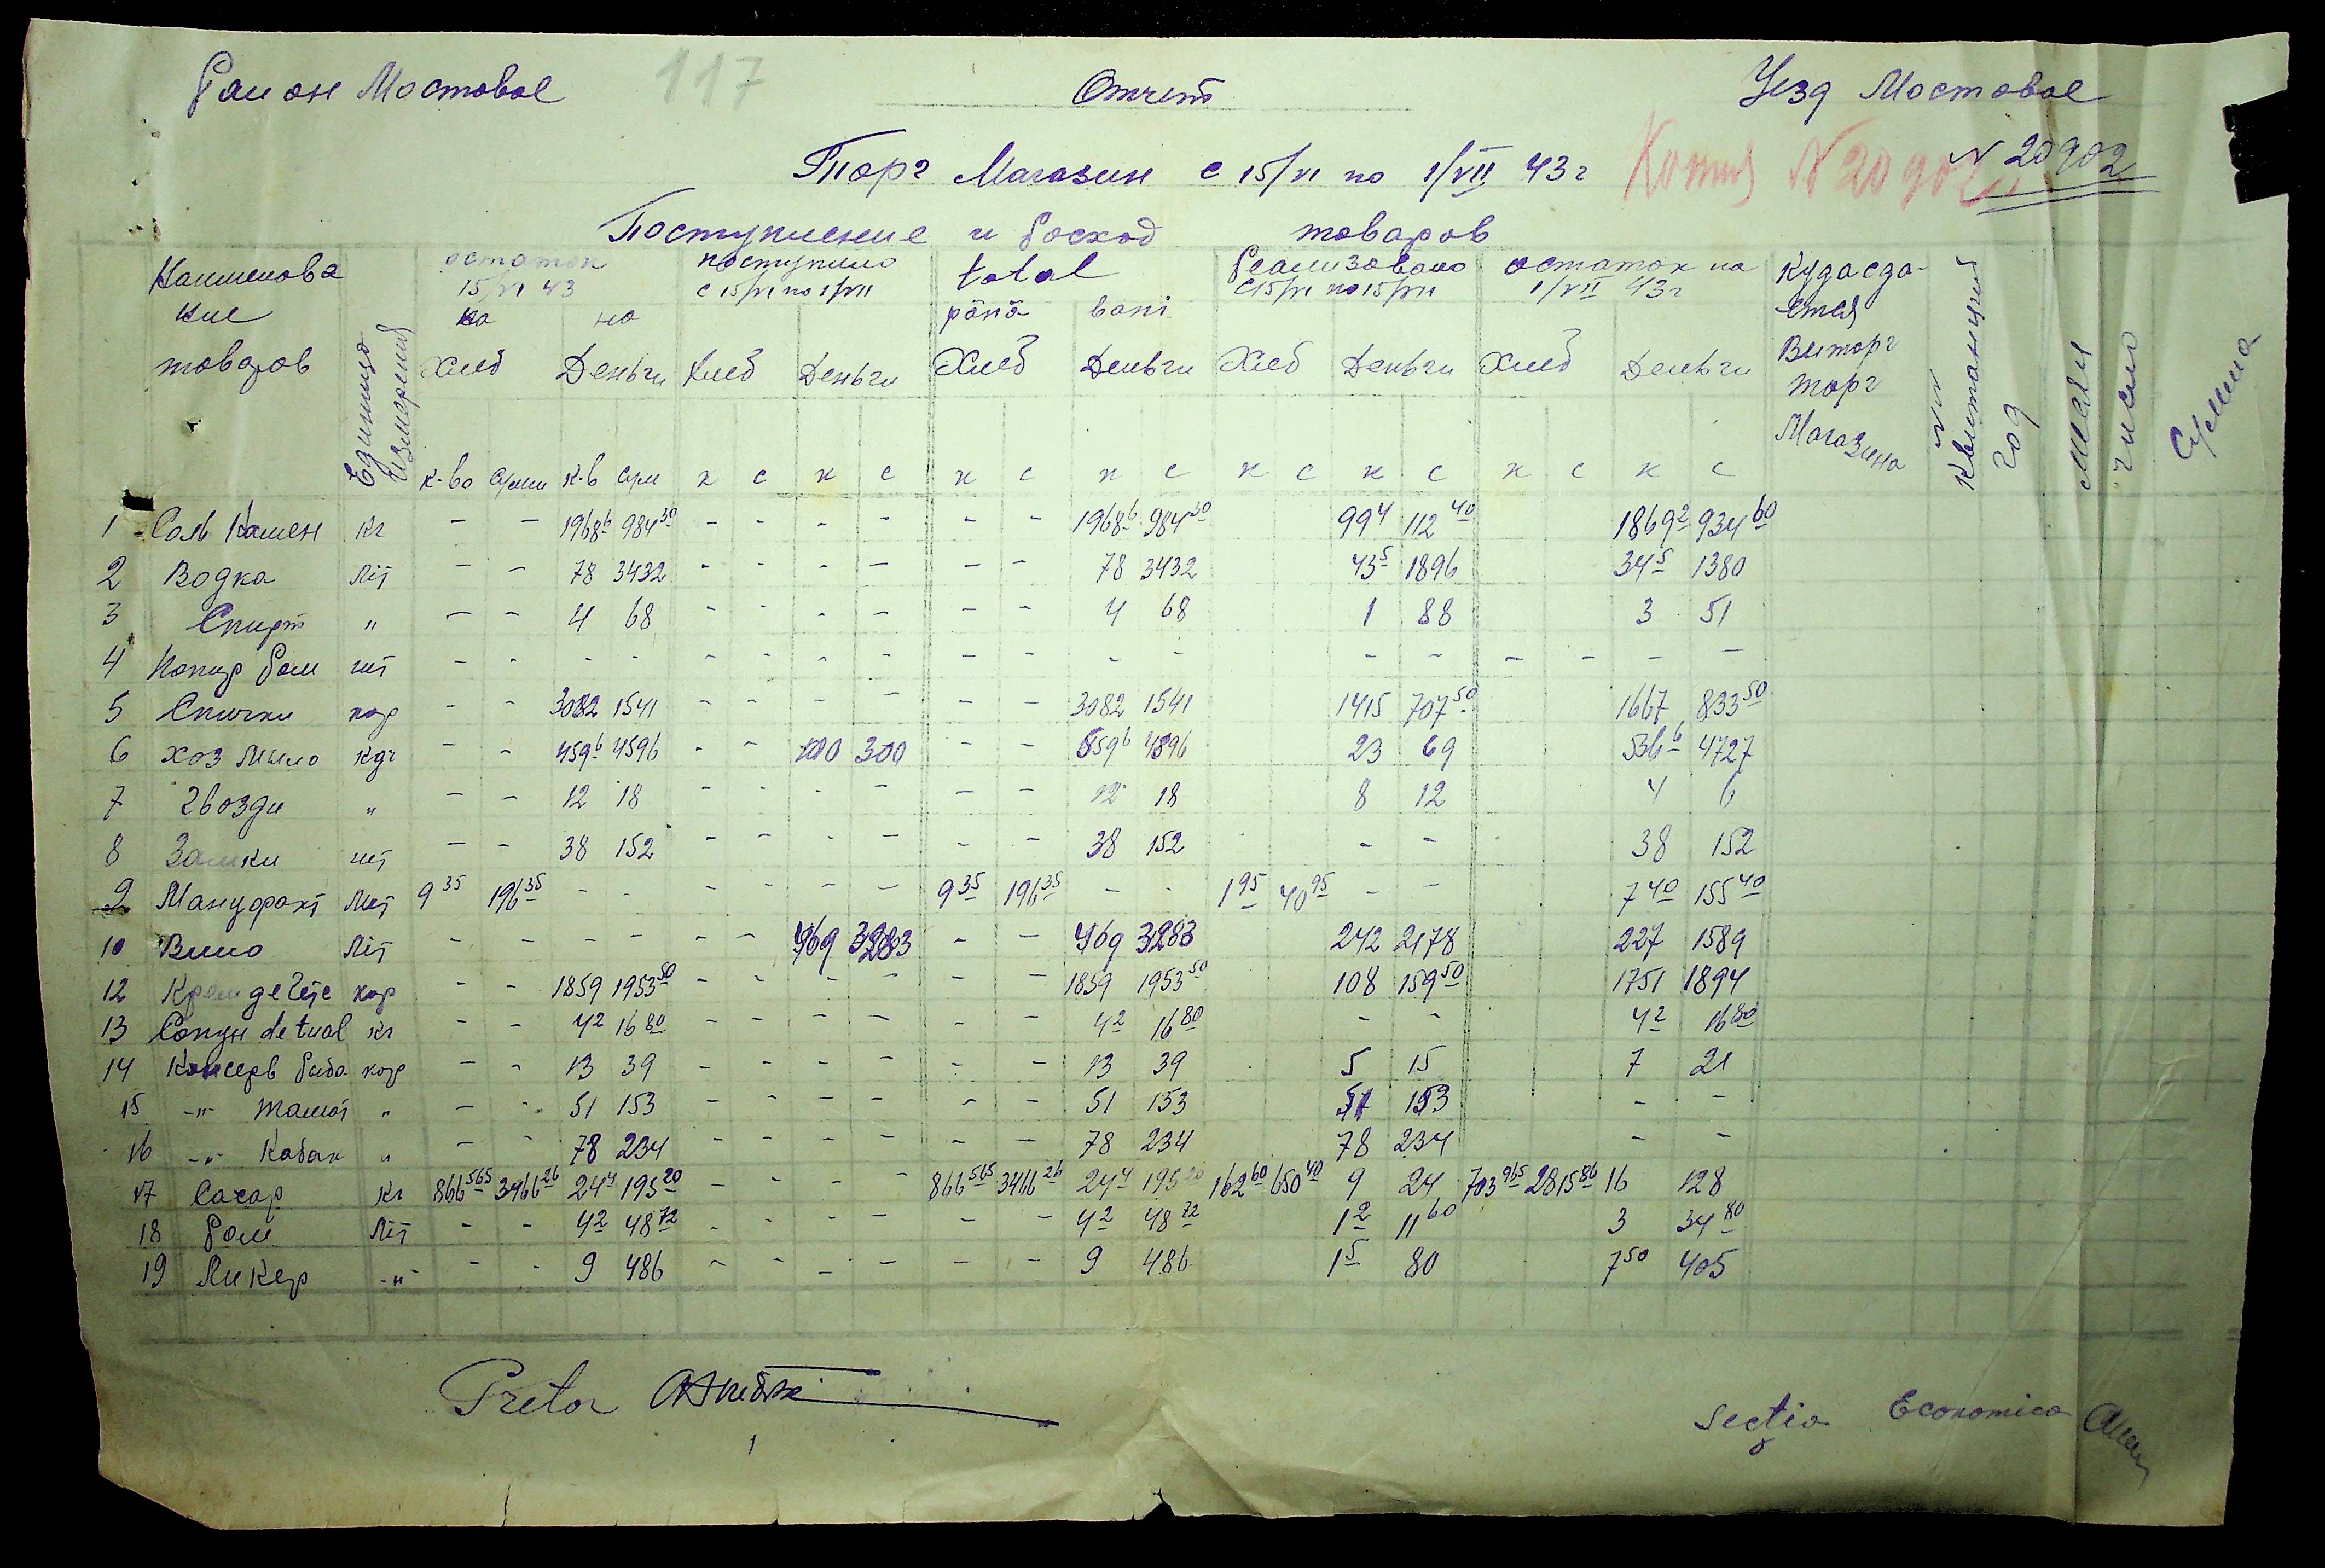 Район Мостовое 117 Отчет Уезд Мостовое
Торг Магазин с 15/VI по 1/VII 43 г Копия N 20902 N 20902
Поступление и Росход товаров
Наименова ние товаров
Единица измерения
остаток 15/VI 43
на Хлеб на Деньги
поступило с 15/VI по 1/VII
Хлеб Деньги
total
până bani
Хлеб Деньги
Реализовано с 15/VI по 15/VII
Хлеб Деньги
остаток на 1/VII 43 г
Хлеб Деньги
Куда сда-
ется
Виторг
торг
Магазина
NN Квитанций
год
число
Сумма
к-во сумм к-в сум к с к с к с к с к с к с к с к с
1 Соль Камен Кг - - 1968 6 984 30 - - - - - - 1968 6 984 30 99 4 112 40 1869 2 934 60
2 Водка Літ - - 78 3432 - - - - - - 78 3432 43 5 1896 34 5 1380
3 Спирт " - - 4 68 - - - - - - 4 68 1 88 3 51
4 шт - - - - - - - - - - - - - - - - - -
5 Спички кор - - 3082 1541 - - - - - - 3082 1541 1415 707 50 1667 833 50
6 Хоз Мыло - - 459 6 4596 - - 100 300 - - 559 6 4896 23 69 536 6 4727
7 Гвозди " - - 12 18 - - - - - - 12 18 8 12 4 6
8 Замки шт - - 38 152 - - - - - - 38 152 - - 38 152
9 Мануфакт Мет 9 35 196 35 - - - - - - 9 35 196 35 - - 1 95 40 95 - - 7 40 155 40
10 Вино Літ - - - - - - 469 3283 - - 469 3283 242 2178 227 1589
12 Крем де гете кор - - 1859 1953 50 - - - - - - 1859 1953 50 108 159 50 1751 1894
13 Сопун de tual Кг - - 4 2 16 80 - - - - - - 4 2 16 80 - - 4 2 16 80
14 Консерв Риба кор - - 13 39 - - - - - - 13 39 5 15 7 21
15 -"- томат " - - 51 153 - - - - - - 51 153 51 153 - -
16 -"- Кабак " - - 78 234 - - - - - - 78 234 78 234 - -
17 Сахар Кг 866 565 3466 26 24 4 195 20 - - - - 866 565 3466 26 24 4 195 20 162 60 650 40 9 24 703 965 2815 86 16 128
18 Ром Літ - - 4 2 48 72 - - - - - - 4 2 48 72 1 2 11 60 3 34 80
19 Ликер -"- - - 9 486 - - - - - - 9 486 1 5 80 7 50 405
Pretor
Secția Economica